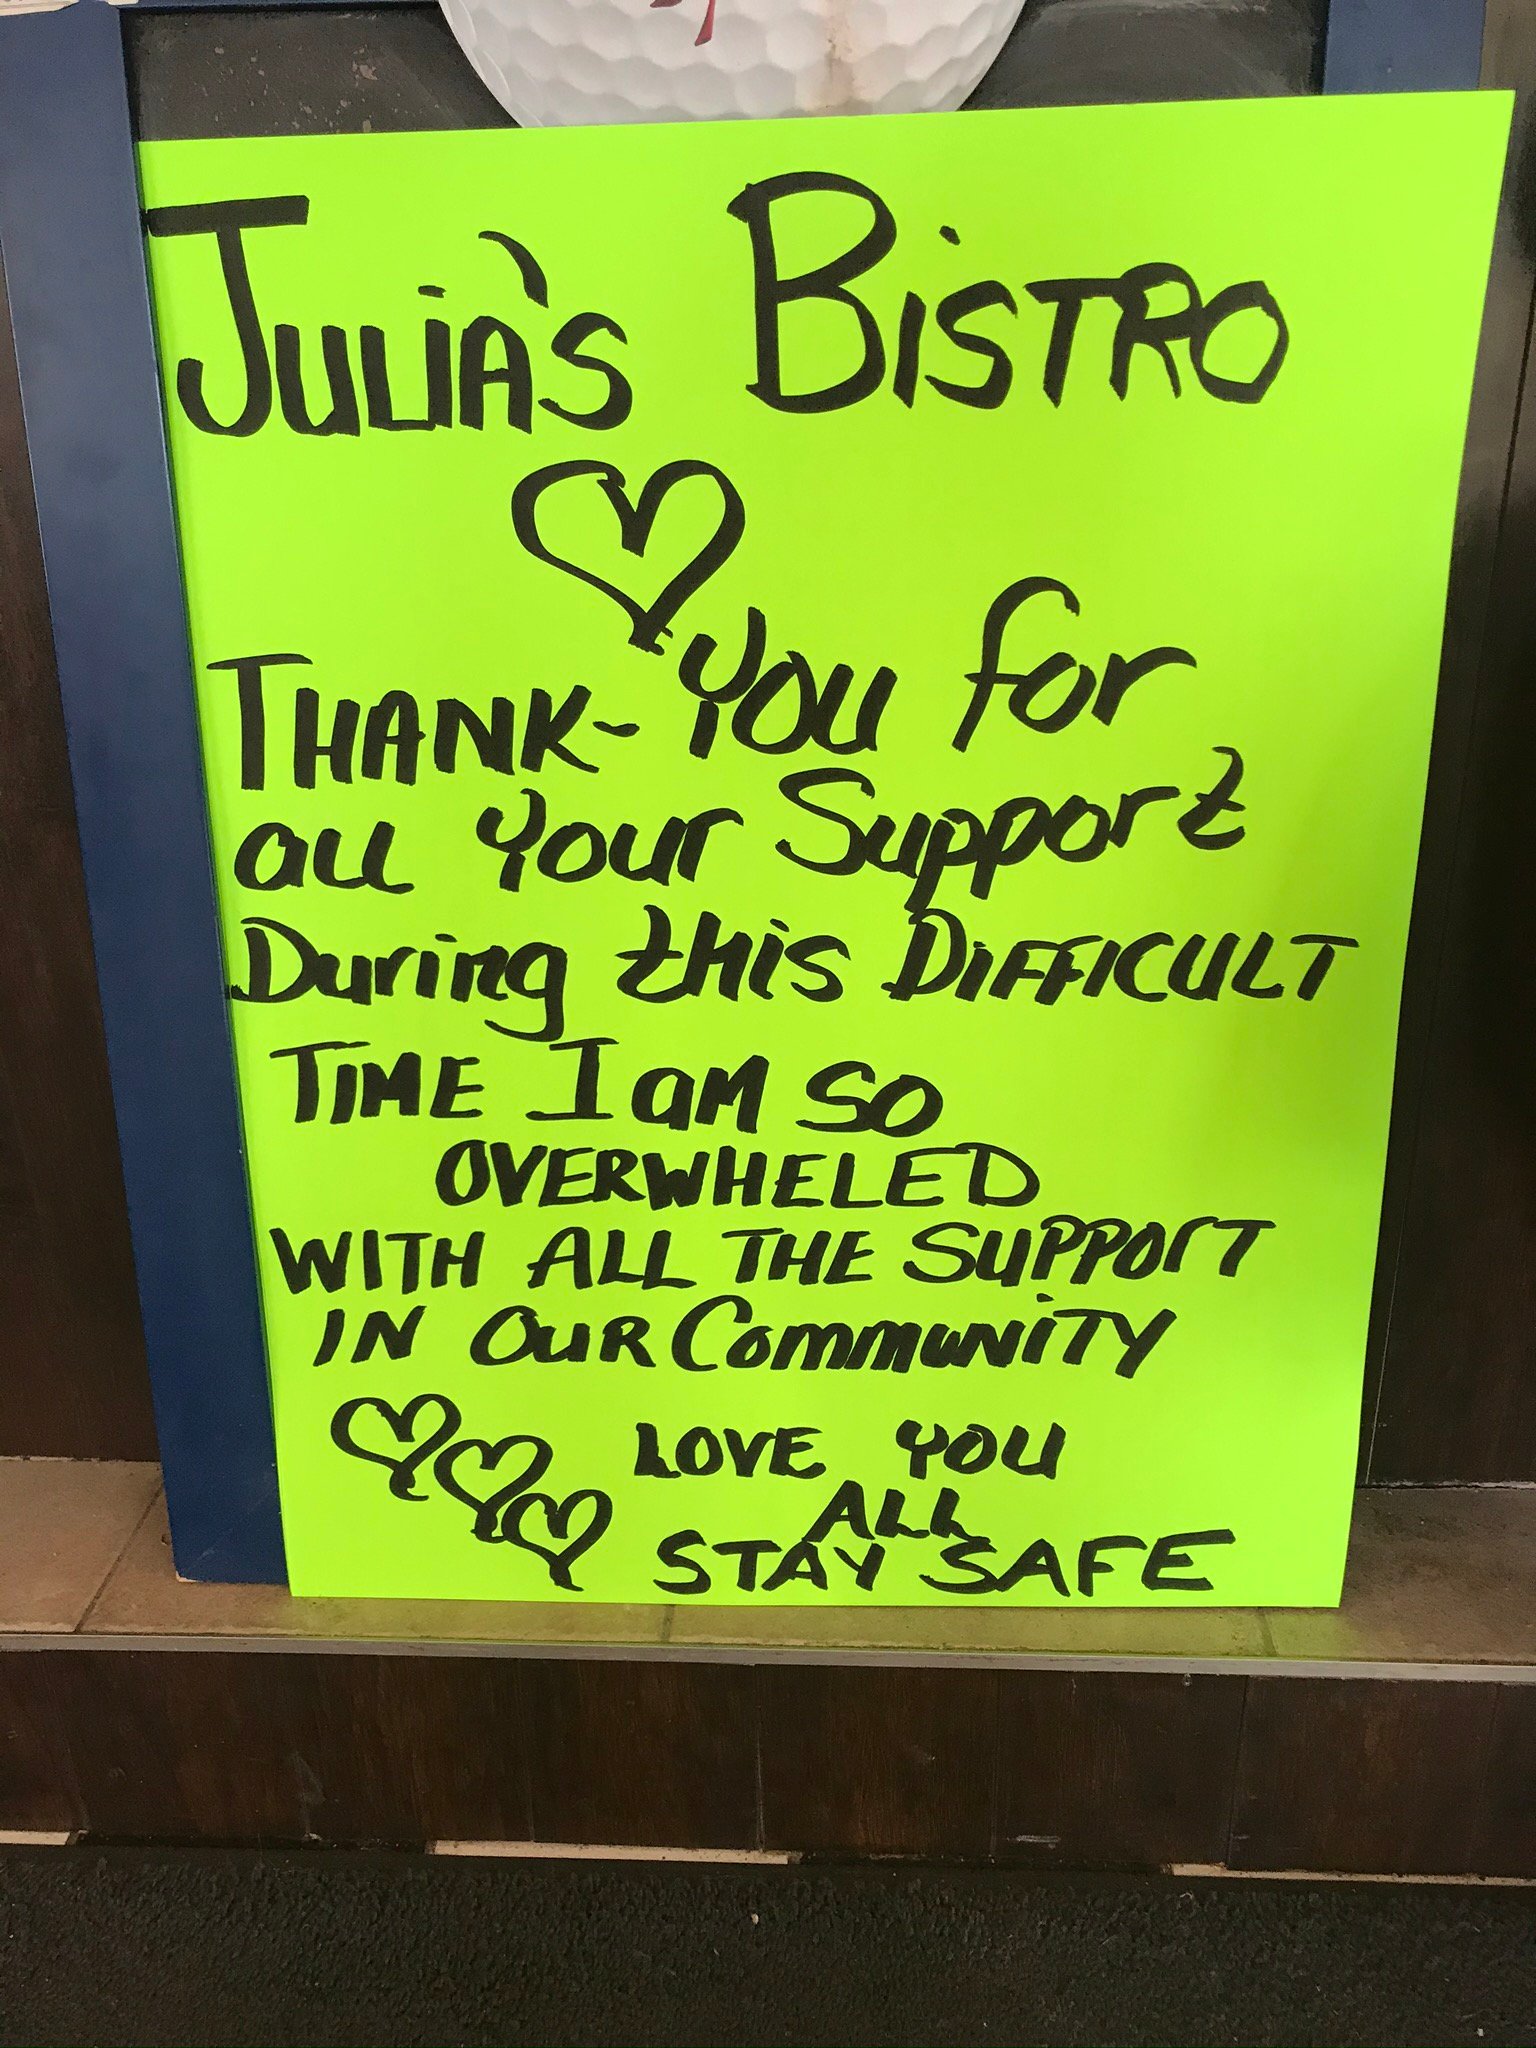 JULIA'S BISTRO
THANK-YOU for
all Your Support
During this DIFFICULT
TIME I aM SO
OVERWHELED
WITH ALL THE SUPPORT
IN OUR COMMUNITY
LOVE YOU
ALL
STAY SAFE